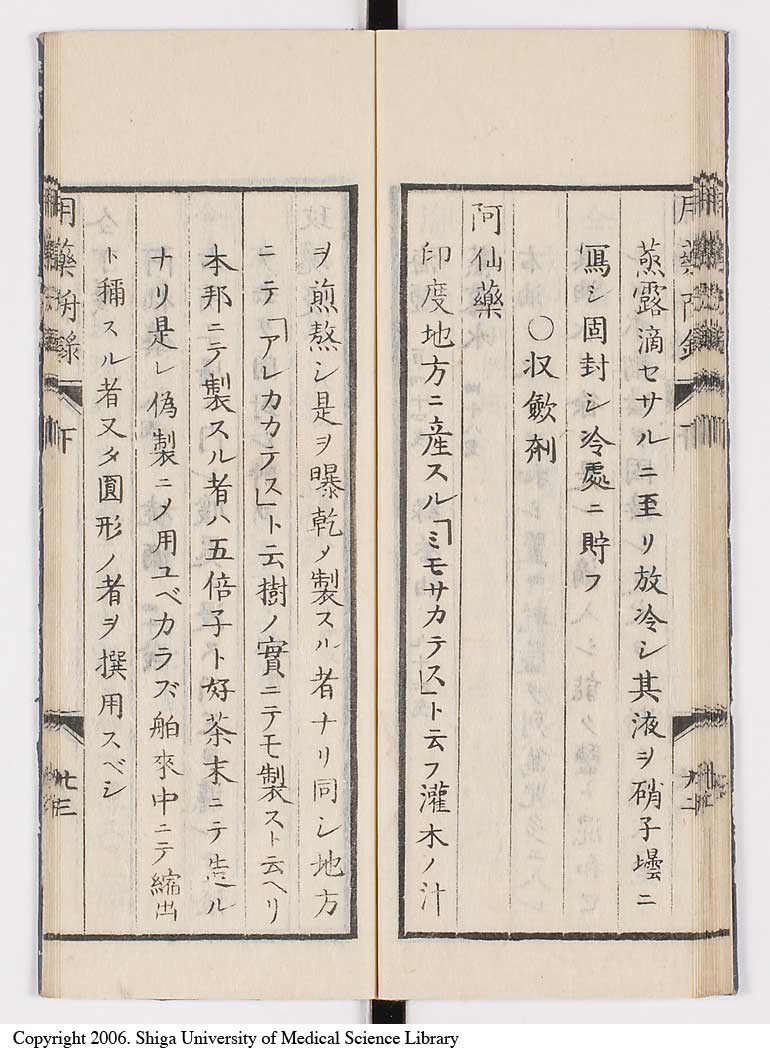 蒸露滴セサルニ至リ放冷シ其液ヲ硝子壜ニ
冩シ固封シ冷處ニ貯フ
〇收斂劑
阿仙藥
印度地方ニ産スル「ミモサカテス」ト云フ灌木ノ汁
ヲ煎熬シ是ヲ曝乾メ製スル者ナリ同シ地方
ニテ「アレカカテス」ト云樹ノ實ニテモ製スト云ヘリ
本邦ニテ製スル者ハ五倍子ト好茶末ニテ造ル
ナリ是レ偽製ニメ用ユベカラズ舶來中ニテ縮出
ト稱スル者又タ圓形ノ者ヲ撰用スベシ
用藥 録
下
廿三
Copyright 2006. Shiga University of Medical Science Library